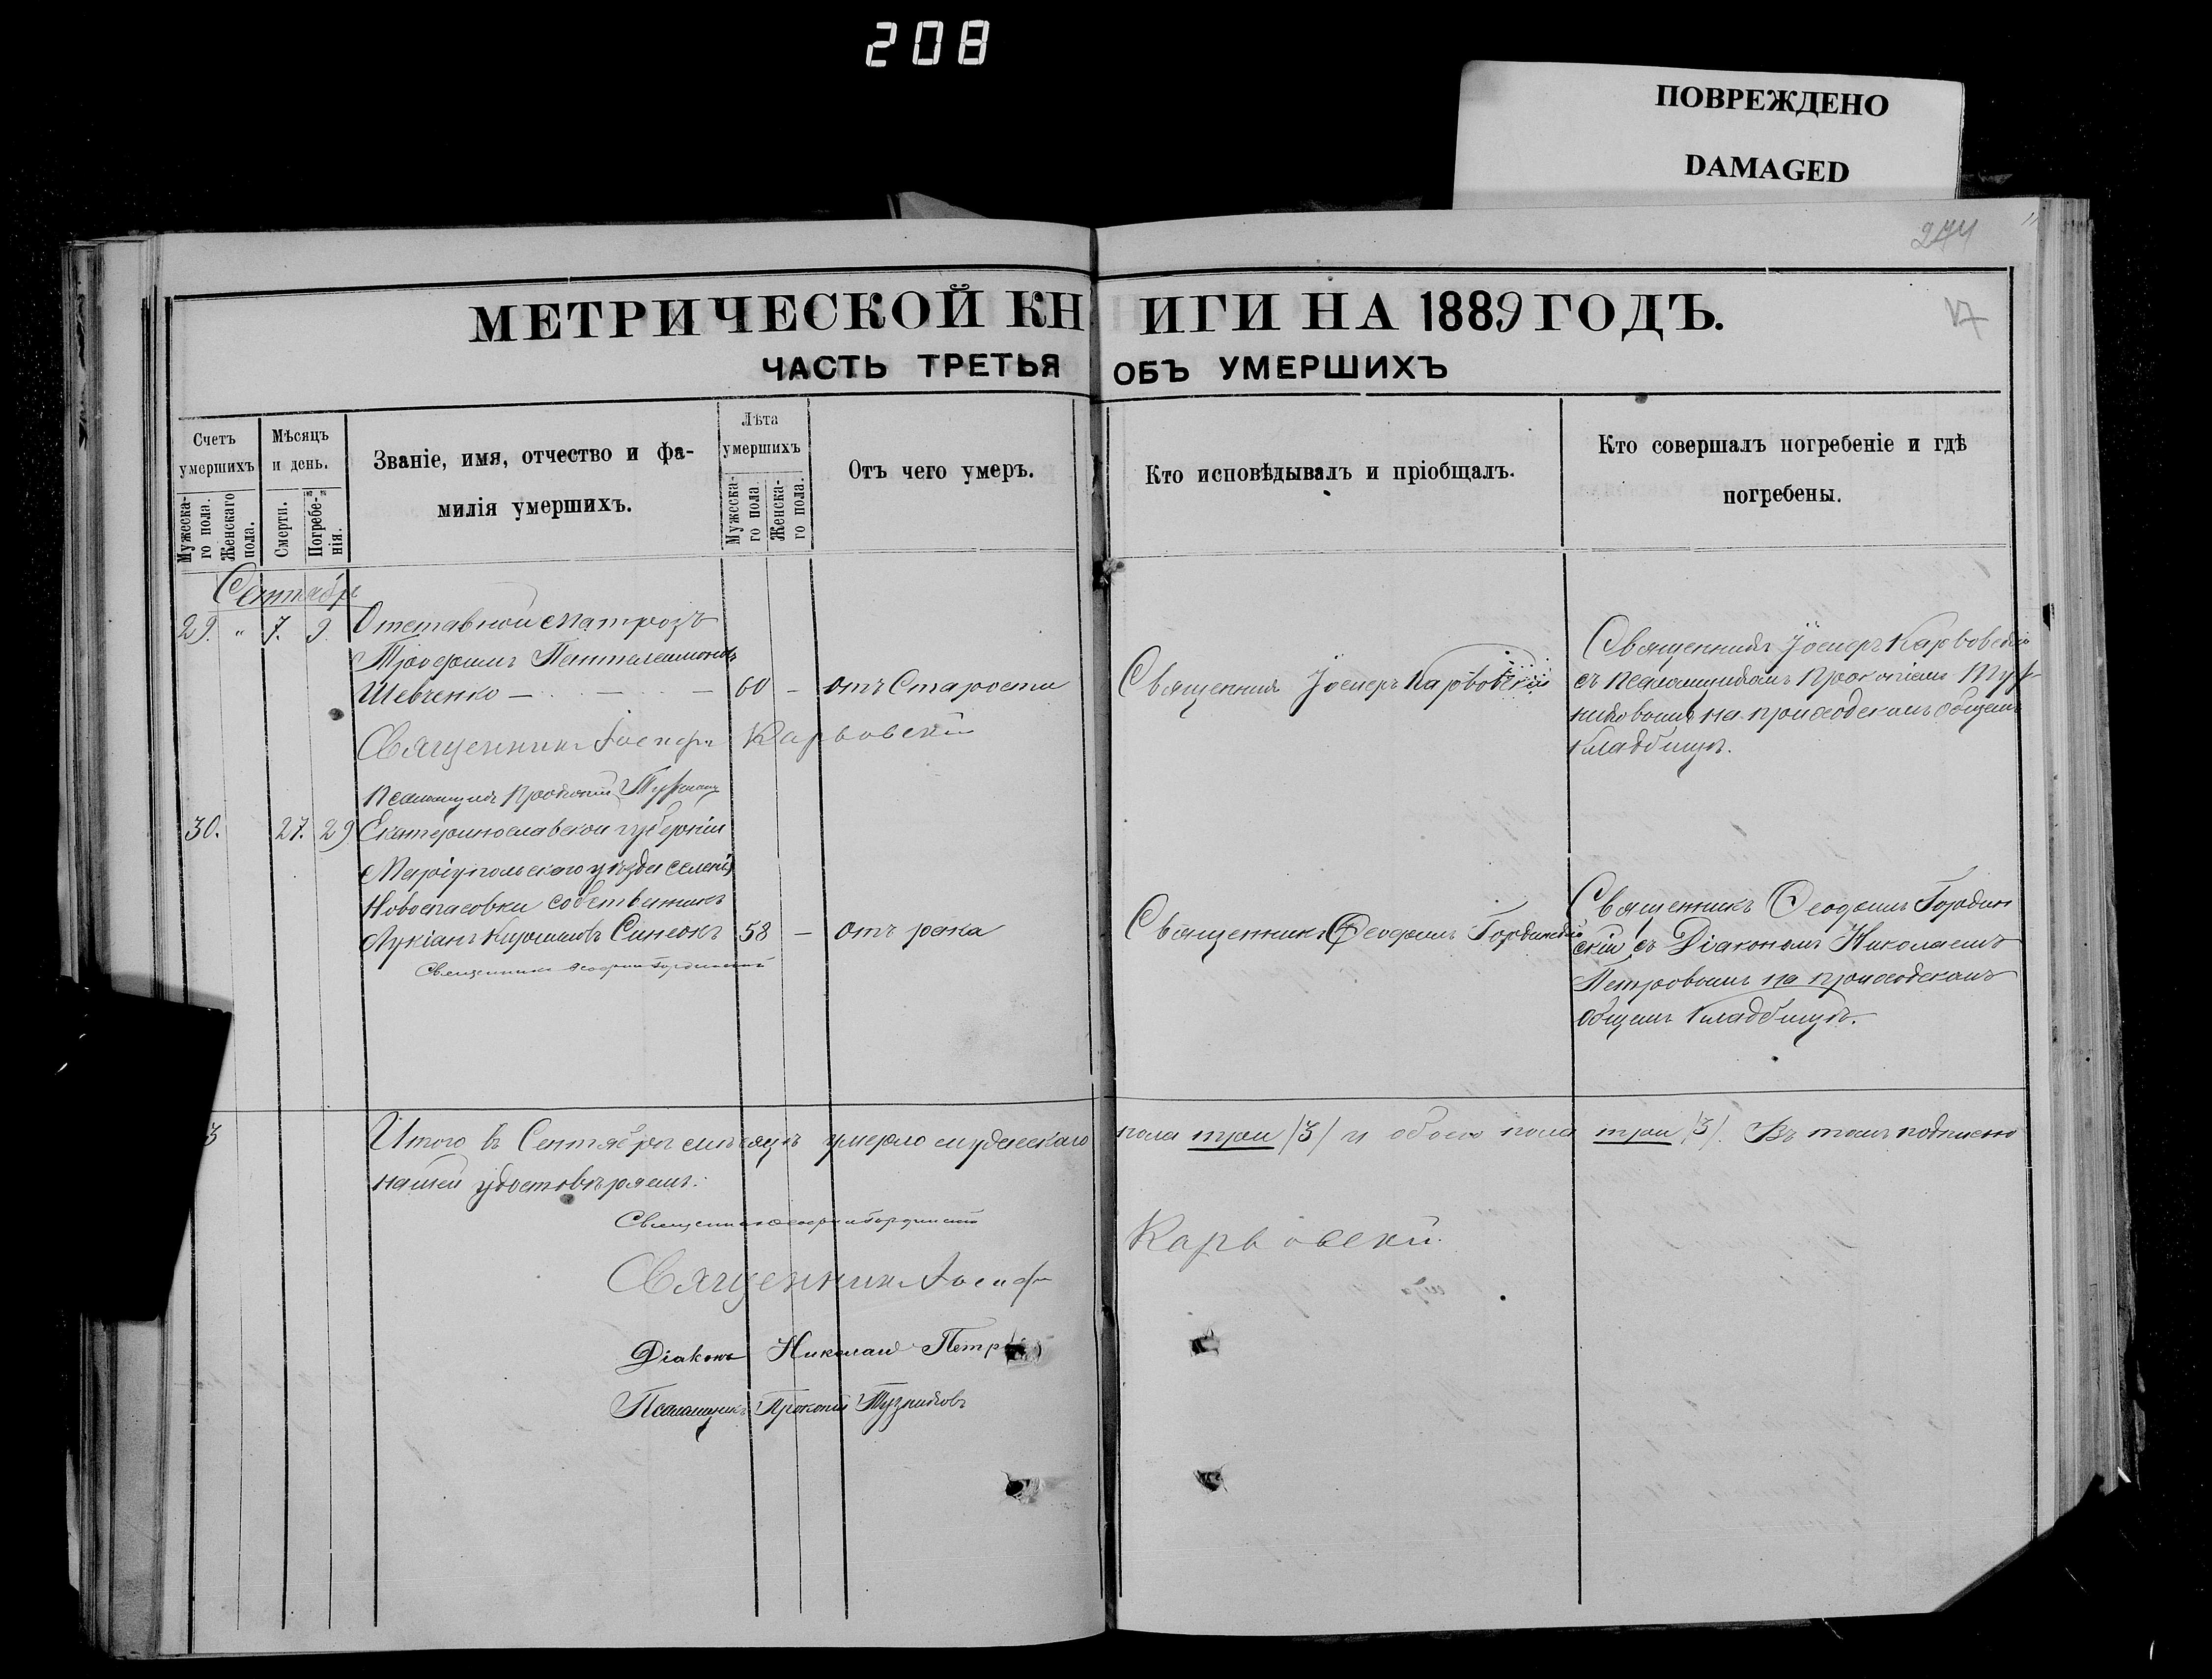 208
ПОВРЕЖДЕНО
DAMAGED
274
17
МЕТРИЧЕСКОЙ КНИГИ НА 1889 ГОДЪ.
ЧАСТЬ ТРЕТЬЯ ОБЪ УМЕРШИХЪ
Счетъ умершихъ
Мужеска-го пола.
Женскаго пола.
Мѣсяцъ и день.
Смерти.
Погребе-нія.
Званіе, имя, отчество и фа-
милія умершихъ.
Лѣта умершихъ
Мужеска-го пола
Женска-го пола.
Отъ чего умеръ.
Кто исповѣдывалъ и пріобщалъ.
Кто совершалъ погребеніе и гдѣ
погребены.
Сентябрь
29. " 7. 9. Отставной Матрозъ
Трофимъ Пантелеимоновъ
Шевченко — 60 — отъ Старости
Священникъ Іосифъ Карвовскій
Священникъ Іосифъ Карвовскій
съ Псаломщикомъ Прокопіемъ Туз-
никовымъ на приходскомъ общемъ
кладбищѣ.
Священникъ Іосифъ Карвовскій
Псаломщикъ Прокопій
30. 27. 29 Екатеринославской губерніи
Маріупольскаго уѣзда селенія
Новоспасовки собственникъ
Лукіанъ Синеокъ 58 — отъ рака
Священникъ Ѳеофилъ Гординскій
Священникъ Ѳеофилъ Гордин
скій съ Діакономъ Николаемъ
Петровымъ на приходскомъ
общемъ кладбищѣ.
Священникъ Ѳеофилъ Гординскій
3 Итого въ Сентябрѣ мѣсяцѣ умерло мужескаго пола три /3/ и обоего пола три /3/. Въ томъ подписью
нашей удостовѣряемъ:
Священникъ Ѳеофилъ Гординскій
Священникъ Іосифъ Карвовскій
Діаконъ Николай Петровъ
Псаломщикъ Прокопій Тузниковъ